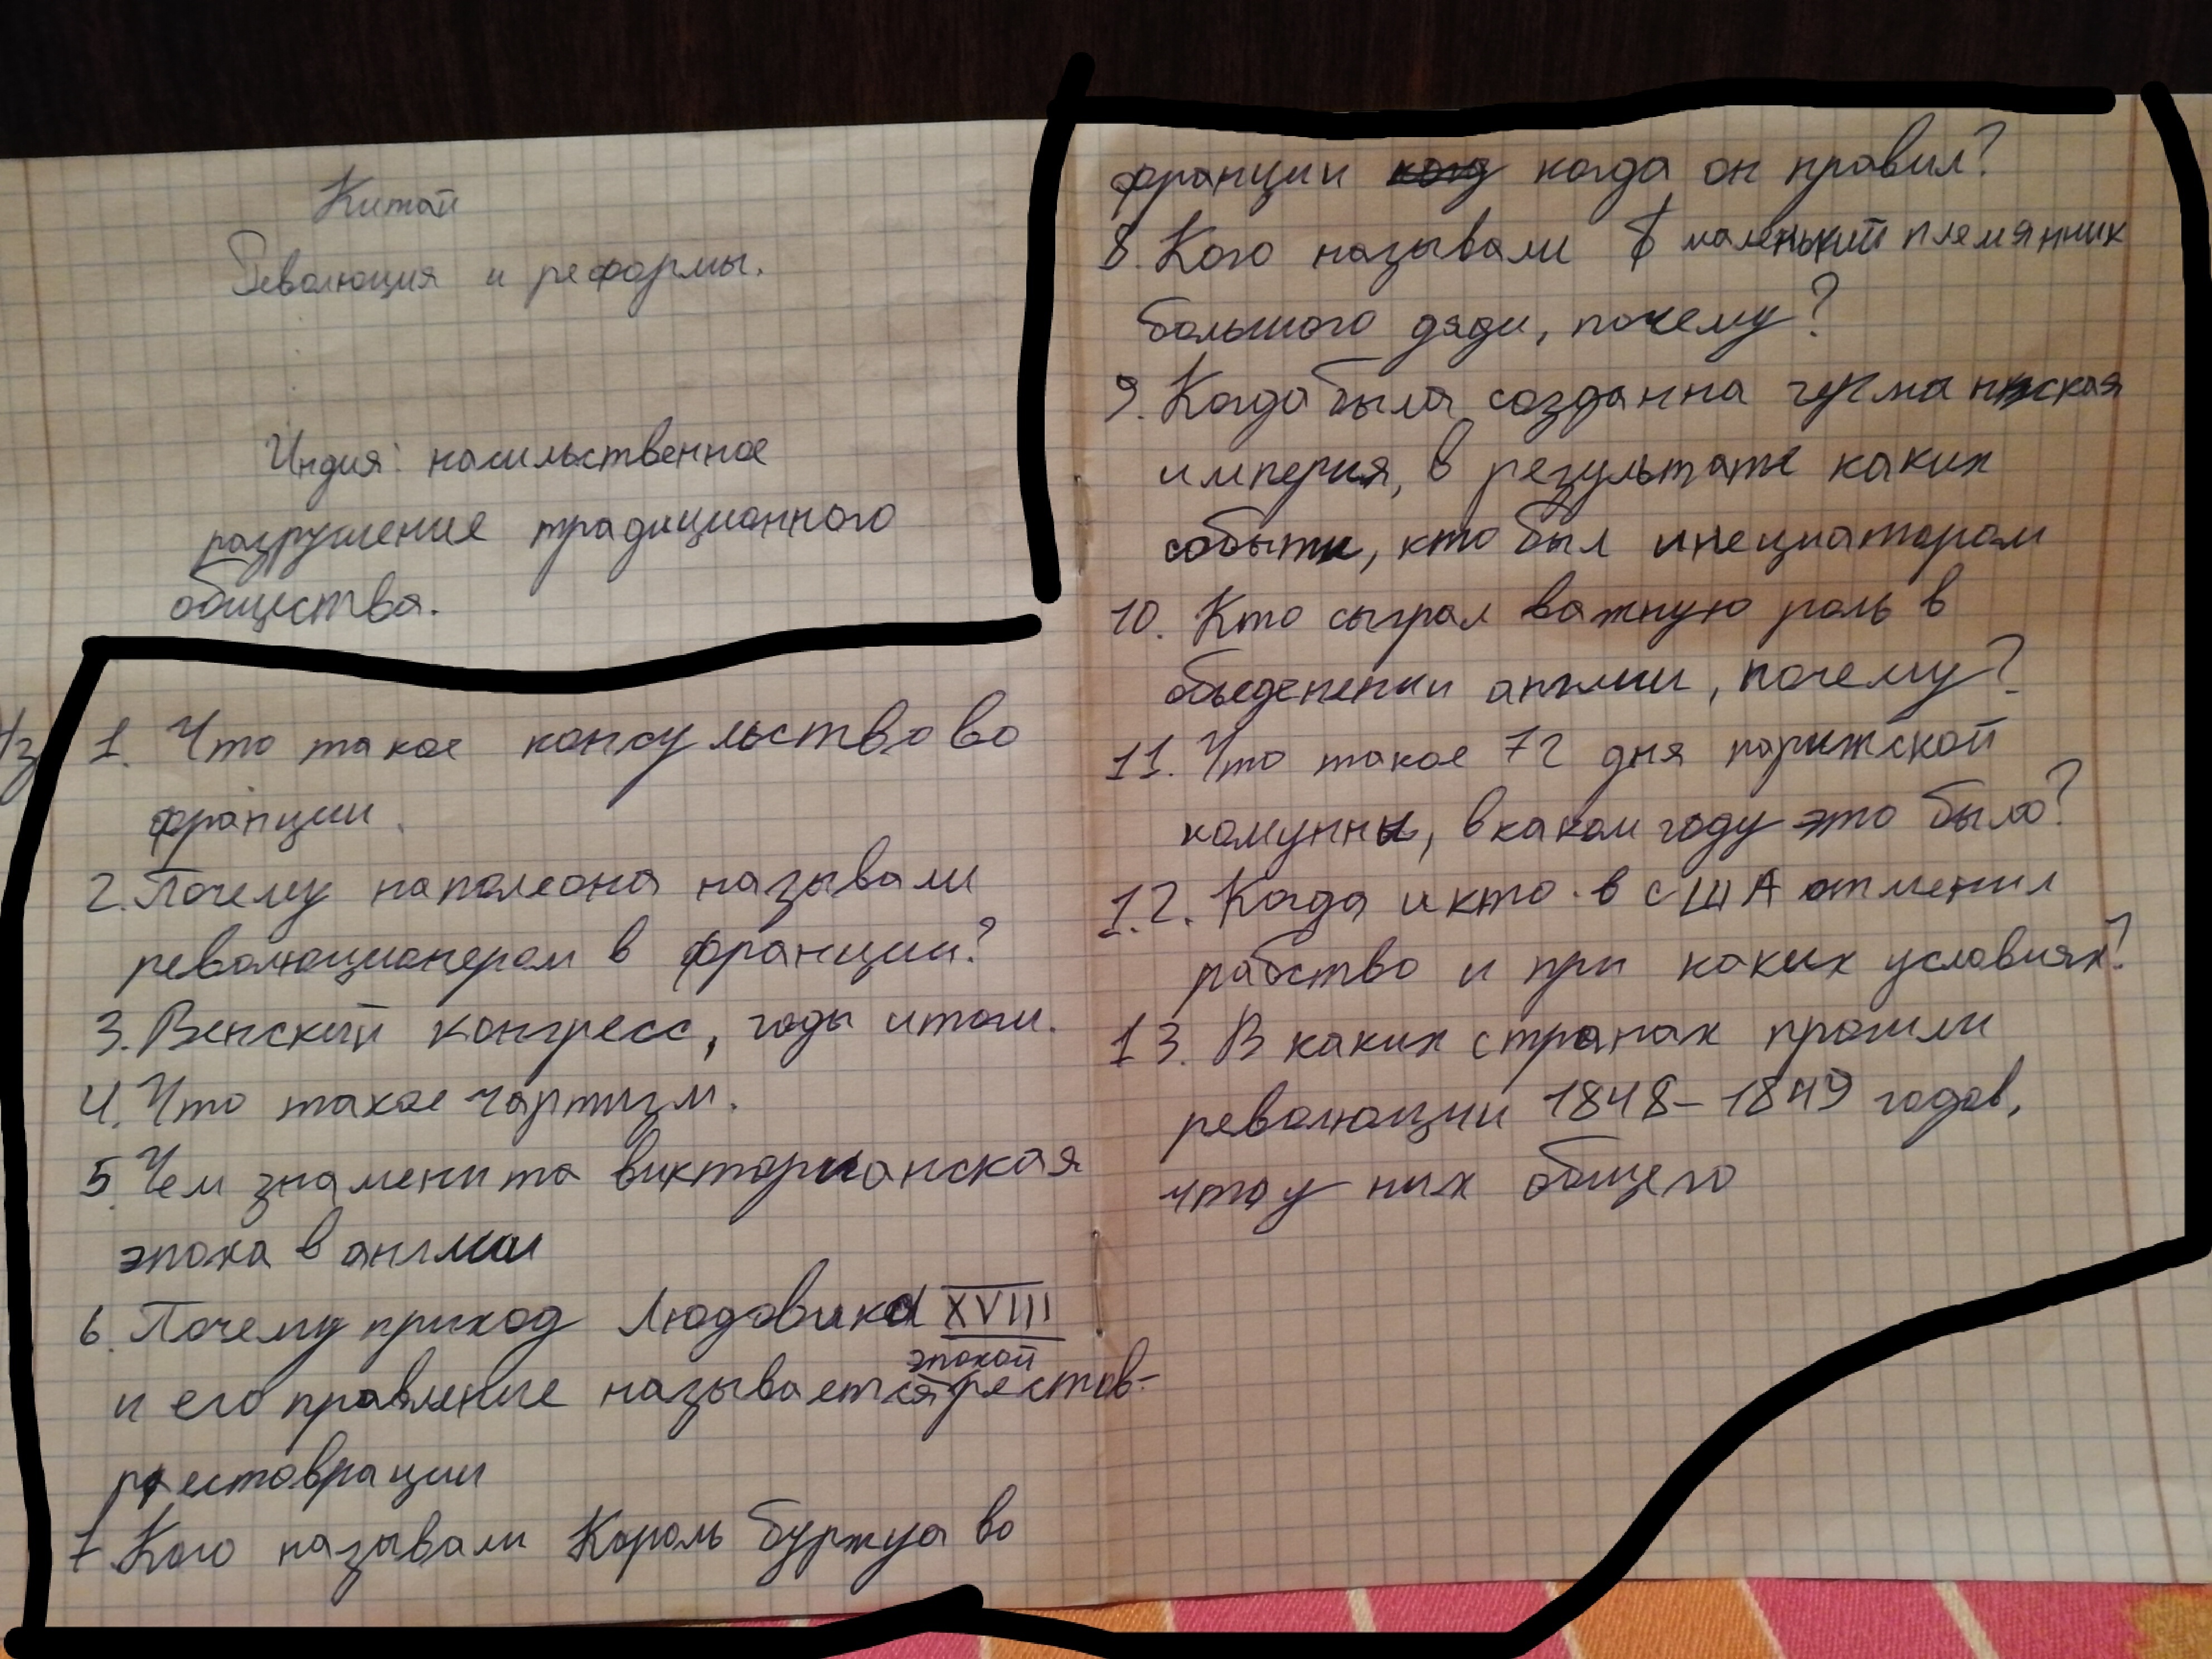 Китай
Революция и реформы.
Индия: насильственное
разрушение традиционного
общества.
1. Что такое консульство во
франции.
2. Почему наполеона называли
революционером в франции?
3. Венский конгресс, годы итоги.
4. Что такое чартизм.
5. Чем знаменита викторианская
эпоха в англии
6. Почему приход Людовика XVIII
эпохой
и его правление называется рестов-
рестоврации
7 Кого называли Король буржуа во
франции когда он правил?
8. Кого называли маленький племянник
большого дяди, почему?
9. Когда была созданна германская
империя, в результате каких
событи, кто был инециатором
10. Кто сыграл важную роль в
объеденении англии, почему?
11. Что такое 72 дня парижской
комунны, в каком году это было?
12. Когда и кто в США отменил
рабство и при каких условиях?
13. В каких странах прошли
революции 1848-1849 годов,
что у них общего